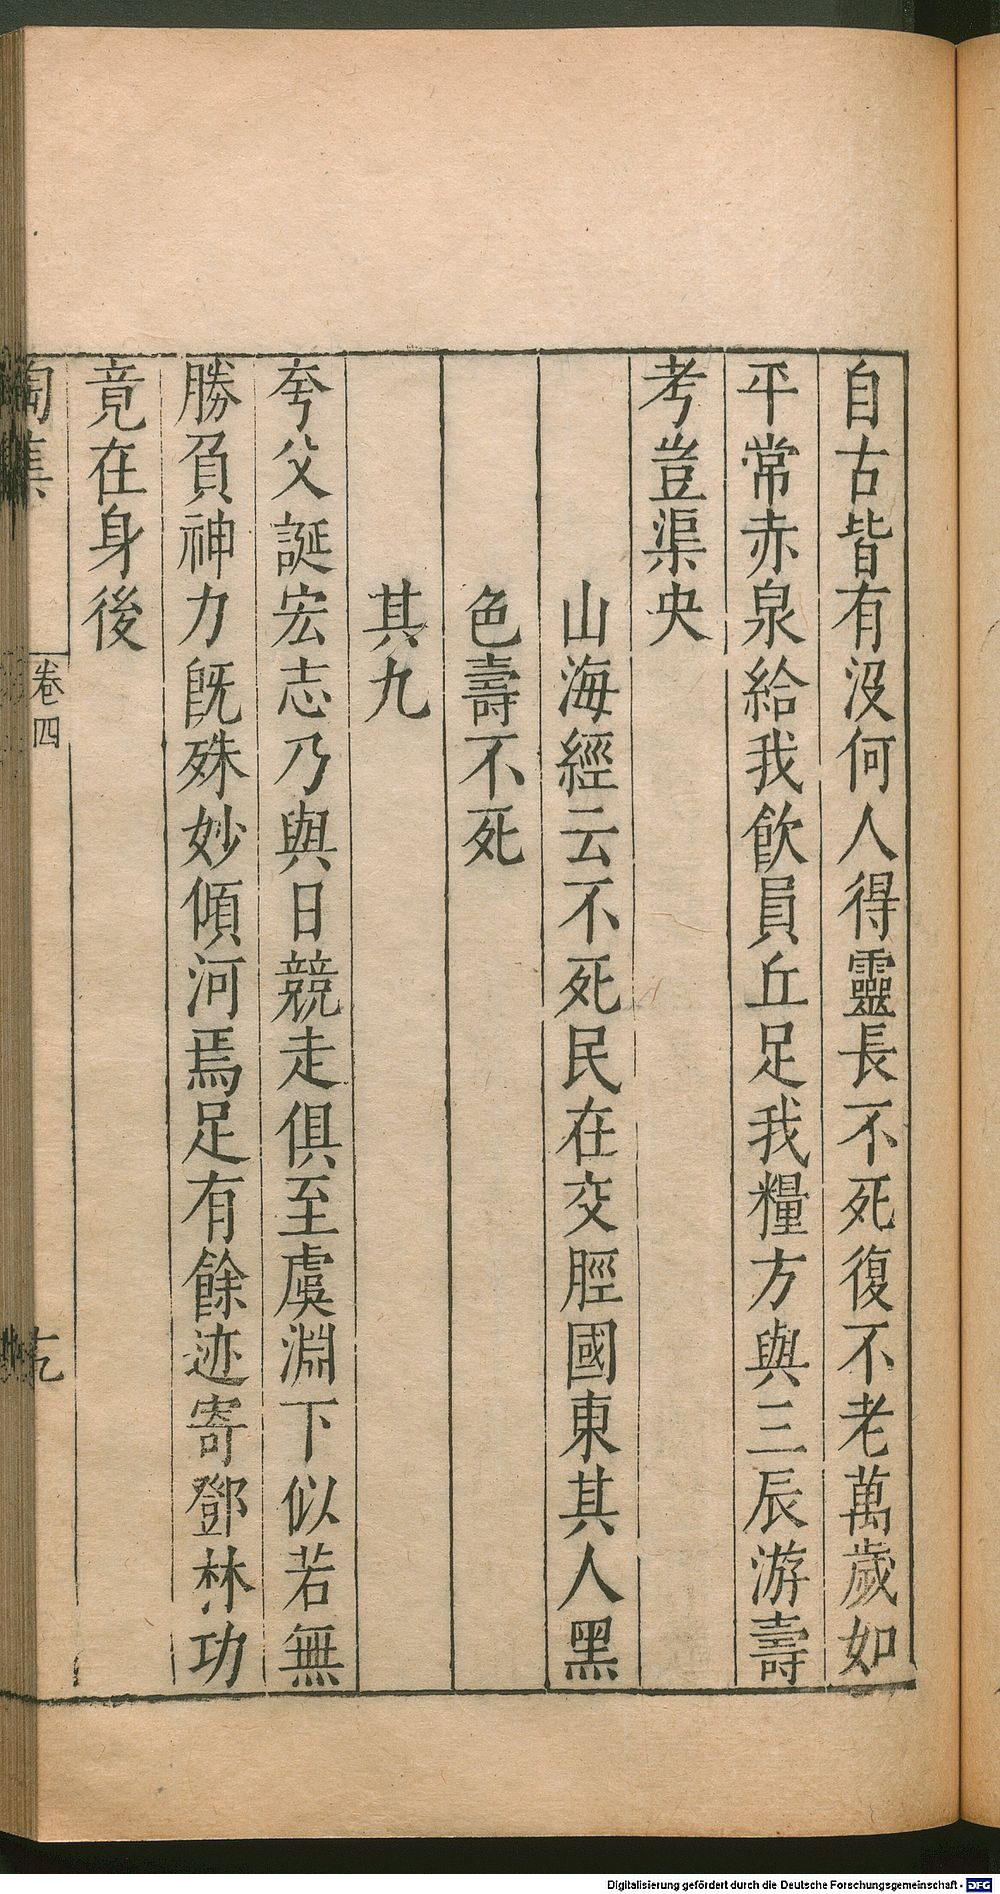 自古皆有沒何人得靈長不死復不老萬歲如
平常赤泉給我飲員丘足我糧方與三辰游壽
考豈渠央
山海經云不死民在交脛國東其人黑
色壽不死
其九
夸父誕宏志乃與日競走俱至虞淵下似若無
勝負神力旣殊妙傾河焉足有餘迹寄鄧林功
竟在身後
陶集
卷四
Digitalisierung gefördert durch die Deutsche Forschungsgemeinschaft - DFG